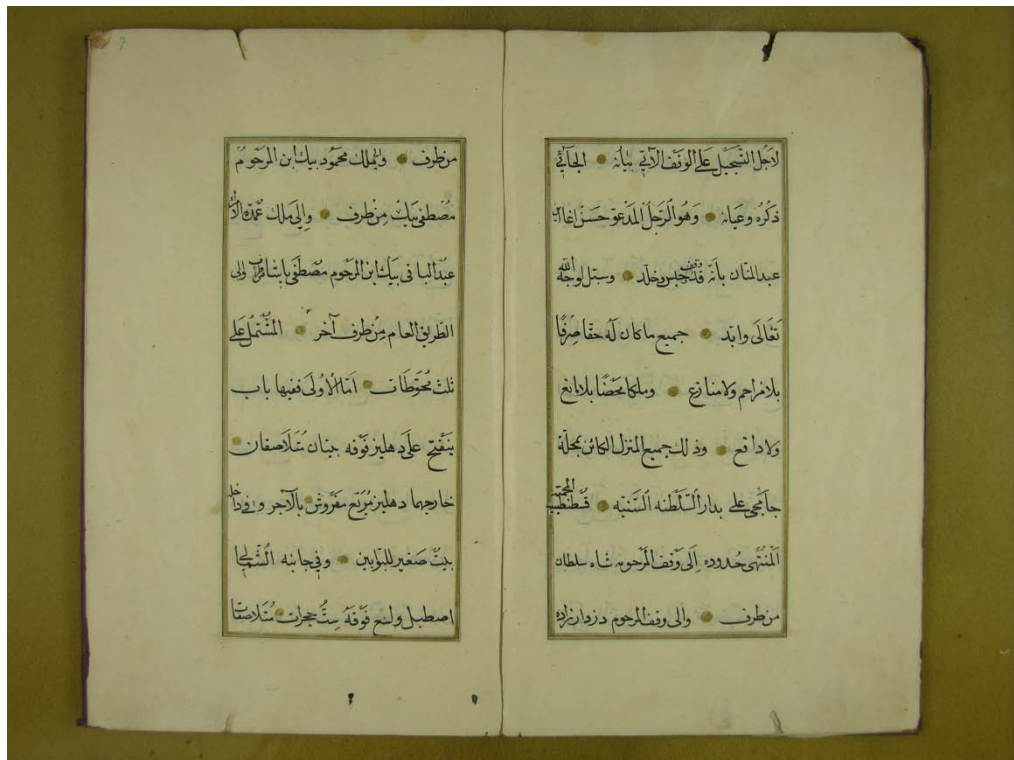 لاجل التسجيل على الوقف الآتي بيانه الجائي
ذكره وعيانه وهو الرجل المدعو حسن اغا ابن
عبد المنان بأنه قد وقف وحبس وخلد وسبل لوجه الله
تعالى وابد جميع ما كان له حقا صرفا
بلا مزاحم ولا منازع وملكا محضا بلا مانع
ولا دافع وذلك جميع المنزل الكائن بمحلة
جامجي علي بدار السلطنه السنيه قسطنطينيه المحميه
المنتهى حدوده إلى وقف المرحومه شاه سلطان
من طرف والى وقف المرحوم دزدار زاده
من طرف والى ملك محمود بيك ابن المرحوم
مصطفى بيك من طرف والى ملك عمدة
عبد الباقي بيك ابن المرحوم مصطفى باشا من طرف والى
الطريق العام من طرف آخر المشتمل على
ثلث محوطات اما الاولى ففيها باب
ينفتح على دهليز فوقه بيتان متلاصقان
خارجهما دهليز مربع مفروش بالآجر وفي داخله
بيت صغير للبوابين وفي جانبه الشمالي
اصطبل واسع فوقه ست حجرات متلاصقات